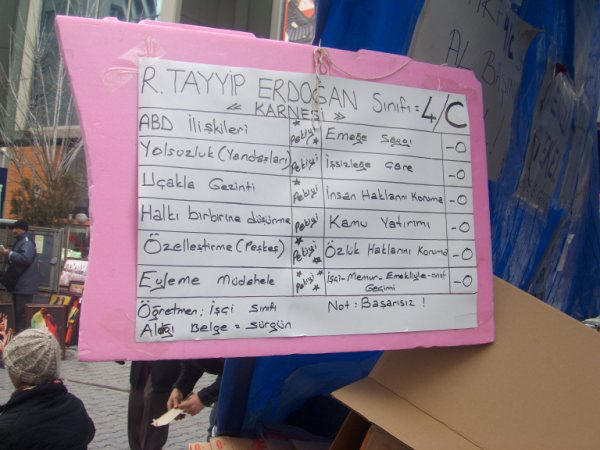 R. TAYYİP ERDOĞAN Sınıfı: 4/C
« KARNESİ »
ABD İlişkileri Pekiyi Emeğe Saygı -0
Yolsuzluk (Yandaşları) Pekiyi İşsizliğe Çare -0
Uçakla Gezinti Pekiyi İnsan Haklarını Koruma -0
Halkı birbirine düşürme Pekiyi Kamu Yatırımı -0
Özelleştirme (Peşkeş) Pekiyi Özlük Haklarını Koruma -0
Eyleme Müdahele Pekiyi İşçi-Memur-Emekliyle-esnaf Geçimi -0
Öğretmen: İşçi Sınıfı Not: Başarısız !
Aldığı Belge = Sürgün